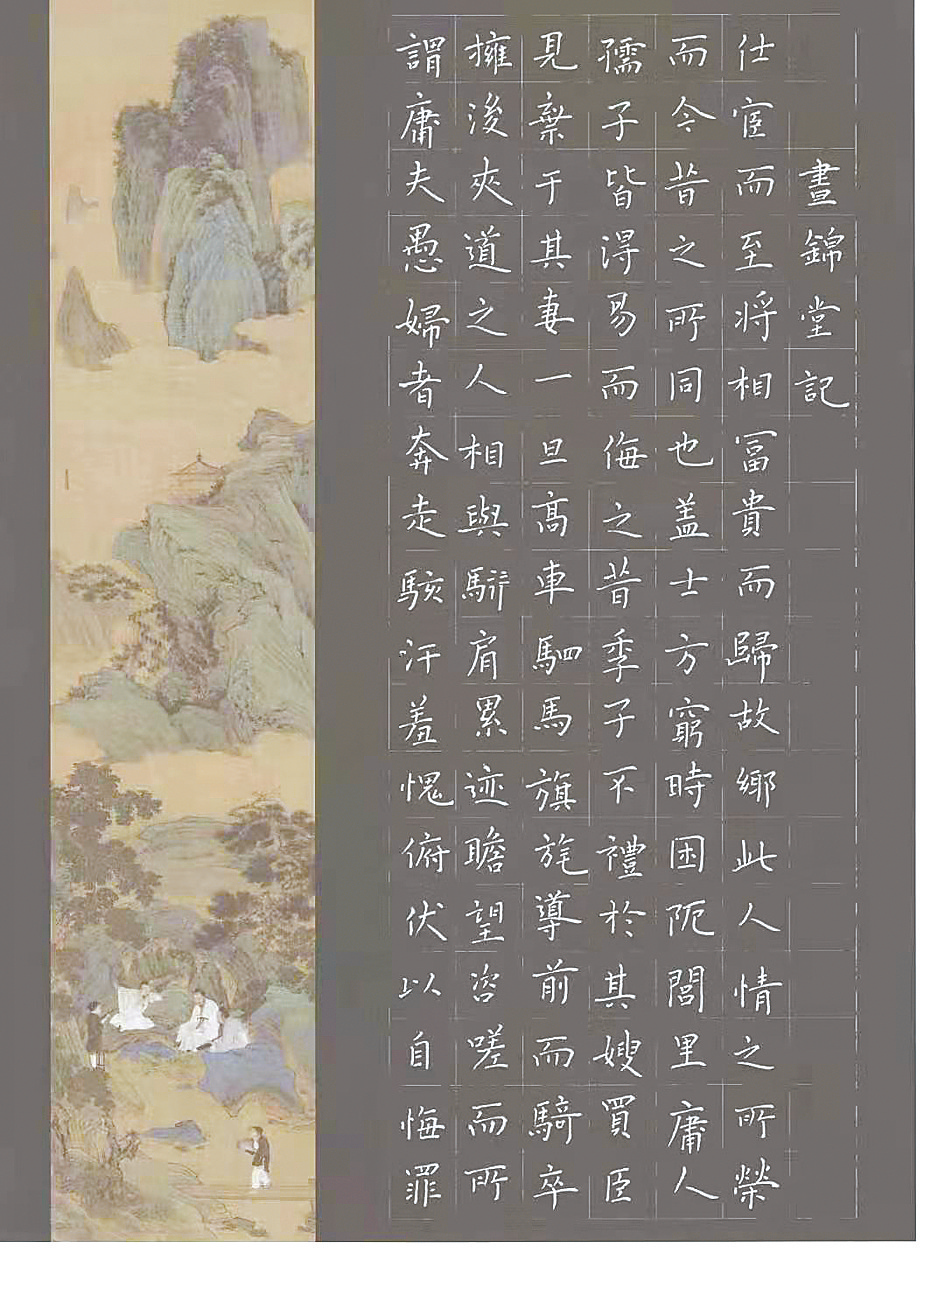 晝錦堂記
仕宦而至将相冨貴而歸故鄉此人情之所榮
而今昔之所同也盖士方窮時困阨閭里庸人
孺子皆得易而侮之昔季子不禮於其嫂買臣
見棄于其妻一旦髙車駟馬旗旄導前而騎卒
擁後夾道之人相與駢肩累迹瞻望咨嗟而所
謂庸夫愚婦者奔走駭汗羞愧俯伏以自悔罪